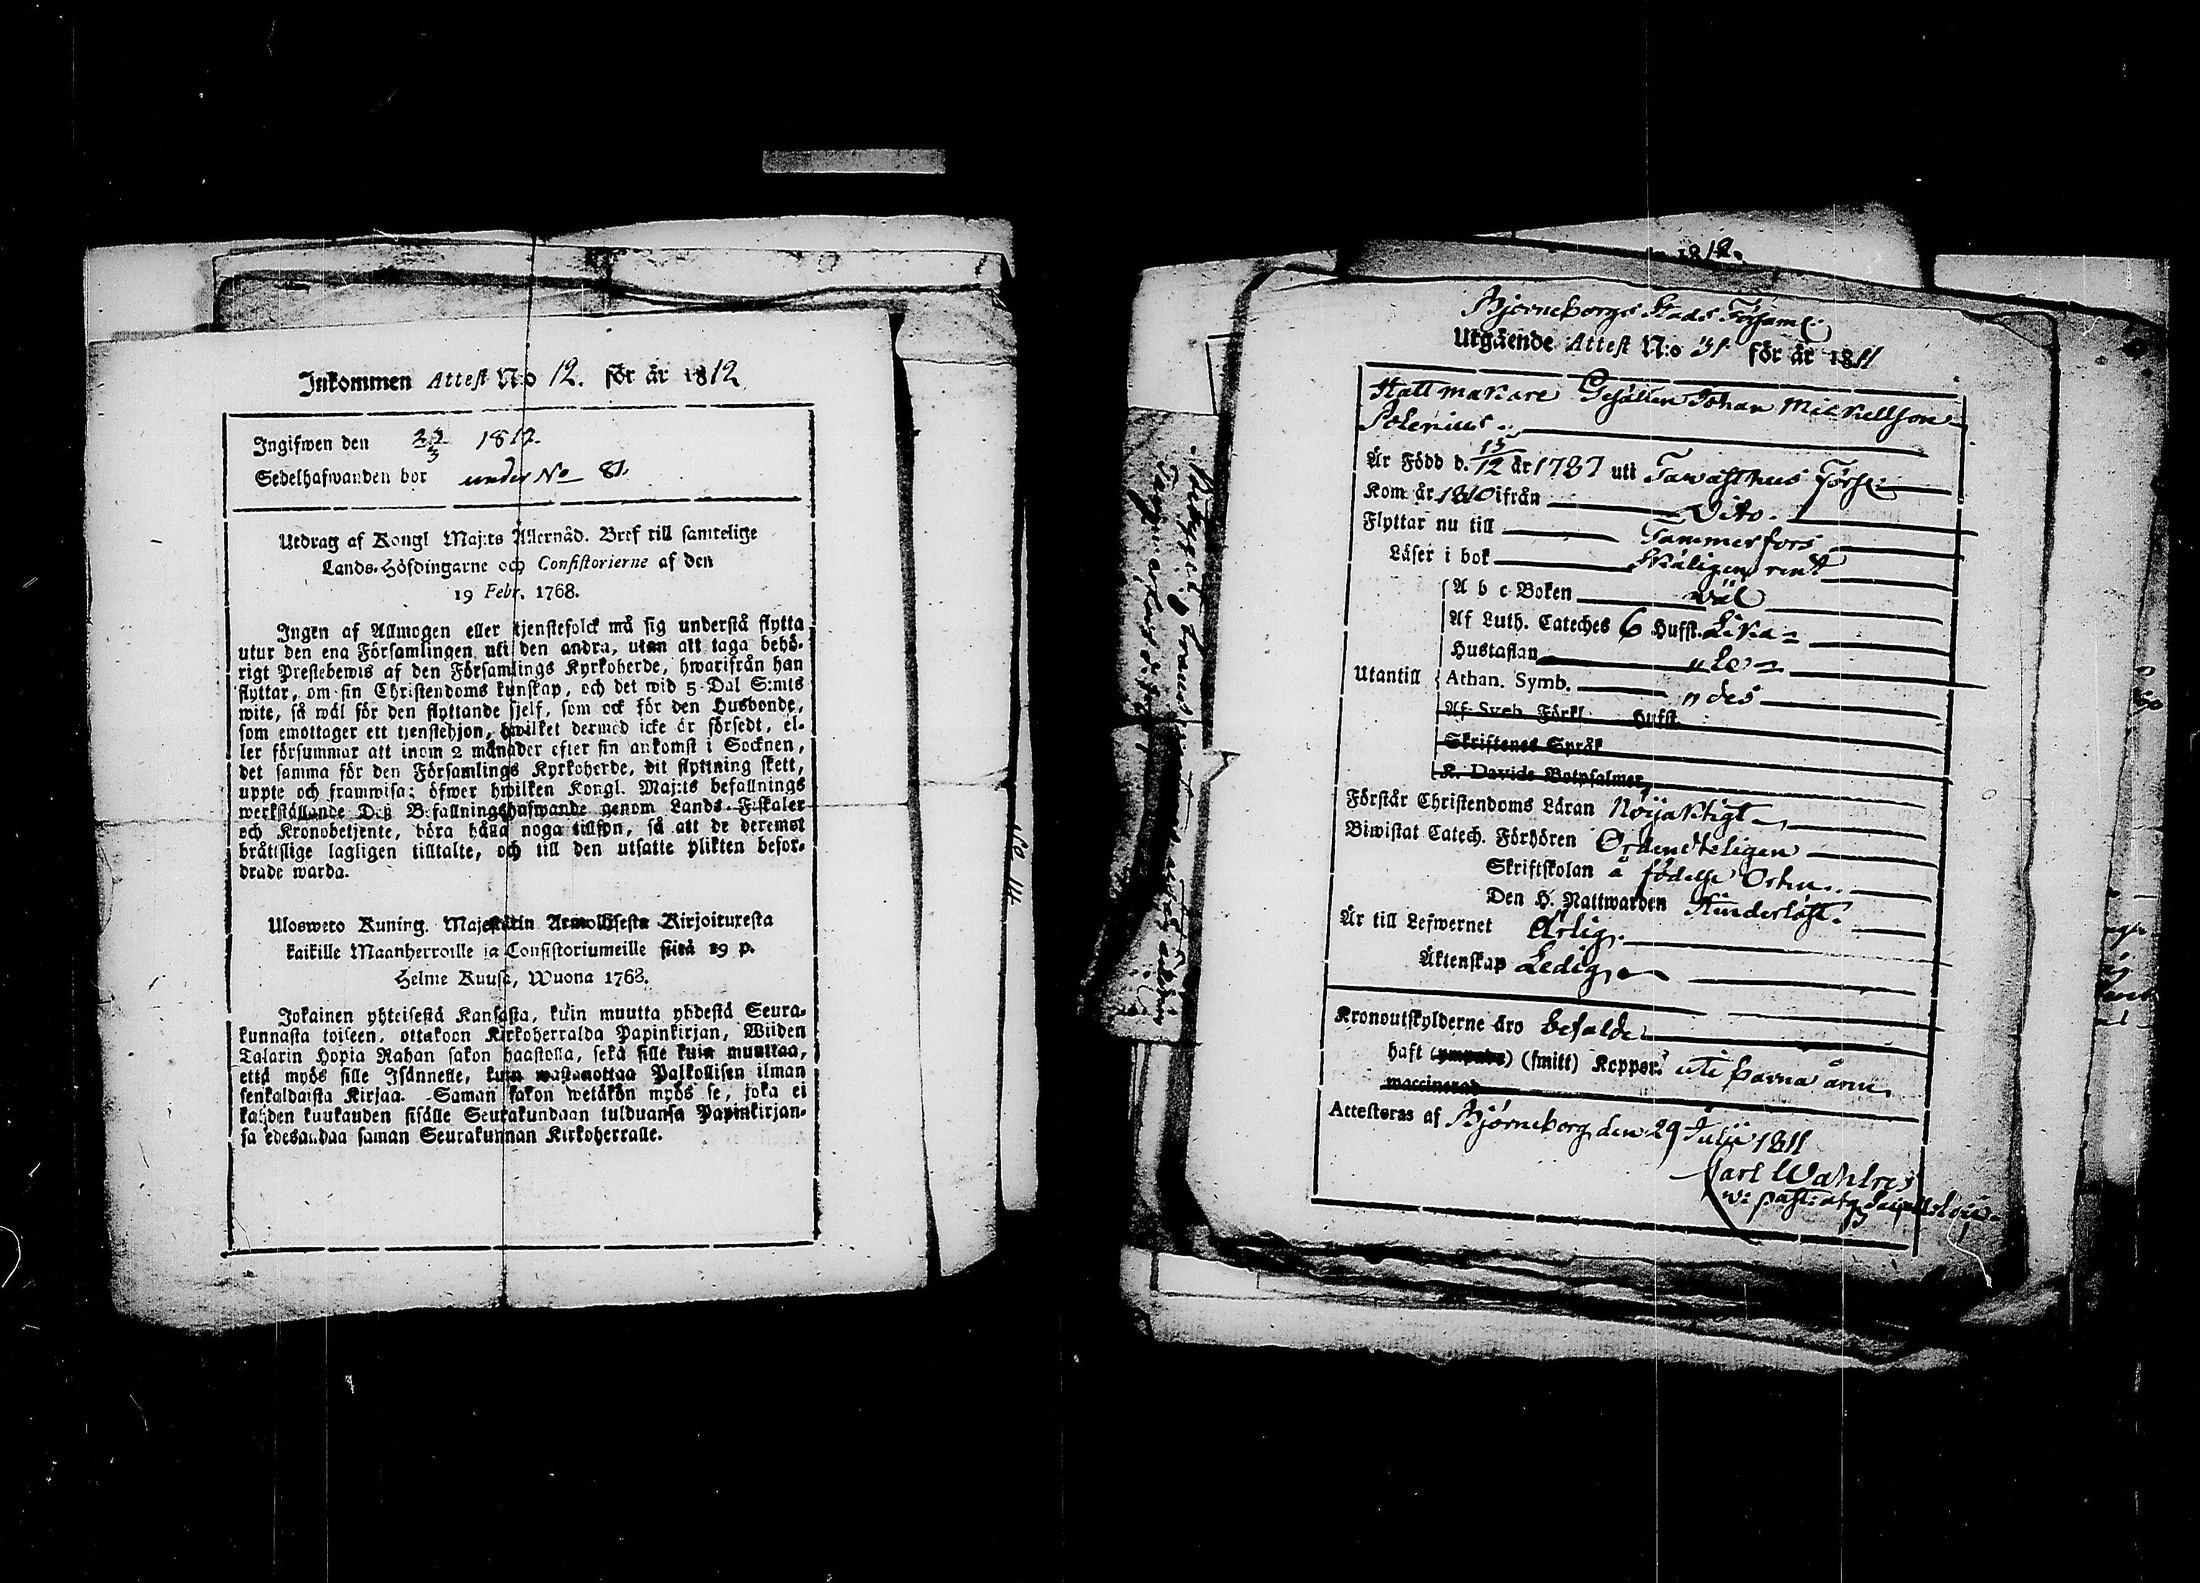 Inkommen Attest N:o 12. för år 1812
Ingifwen den 22/3 1812.
Sedelhafwanden bor under No 81.
Utdrag af Kongl Maj:ts Allernåd. Bref till samtelige
Lands-Höfdingarne och Consistorierne af den
19 Febr. 1768.
Ingen af Allmogen eller tjenstefolck må sig understå flytta
utur den ena Församlingen uti den andra, utan att taga behö-
rigt Prestebewis af den Församlings Kyrkoherde, hwarifrån han
flyttar, om sin Christendoms kunskap, och det wid 5 Dal S:mts
wite, så wäl för den flyttande sjelf, som ock för den Husbonde,
som emottager ett tjenstehjon, hwilket dermed icke är försedt, el-
ler försummar att inom 2 månader efter sin ankomst i Socknen,
det samma för den Församlings Kyrkoherde, dit flyttning skett,
uppte och framwisa; öfwer hwilken Kongl. Maj:ts befallnings
werkställande Deß Befallningshafwande genom Lands-Fiskaler
och Kronobetjente, böra hålla noga tillsyn, så att de deremot
bråttslige lagligen tilltalte, och till den utsatte plikten befor-
drade warda.
Ulosweto Kuning. Majestetin Armollisesta Kirjoituxesta
kaikille Maanherroille ja Consistoriumeille siitä 19 p.
Helme Kuusa, Wuona 1768.
Jokainen yhteisestä Kansasta, kuin muutta yhdestä Seura-
kunnasta toiseen, ottakoon Kirkoherralda Papinkirjan, Wiiden
Talarin Hopia Rahan sakon haastolla, sekä sille kuin muuttaa,
että myös sille Isännelle, kuin wastanottaa Palkollisen ilman
senkaldaista Kirjaa. Saman sakon wetäkön myös se, joka ei
kahden kuukauden sisälle Seurakundaan tulduansa Papinkirjan-
sa edesandaa saman Seurakunnan Kirkoherralle.
1812.
Björneborgs Stads Församl:
Utgående Attest N:o 31 för år 1811
Hattmakare Gesällen Johan Mickellson
Polenius
Är Född d. 15/12 år 1787 uti Tawasthus Förs:
Kom år 1810 ifrån Dito.
Flyttar nu till Tammerfors
Läser i bok Skäligen rent
Utantill
A b c Boken wäl
Af Luth. Cateches 6 Hufst. Lika
Hustaflan
Athan. Symb.
Af Sveb. Förkl. Hufst.
Skriftenes Språk
K. Davids Botpsalmer
Förstår Christendoms Läran Nöijaktigt
Biwistat Catech. Förhören Ordenteligen
Skriftskolan å födelse Orten
Den H. Nattwarden Hinderlöst.
Är till Lefwernet Ärlig.
Äktenskap Ledig
Kronoutskylderne äro befalde
haft (ympade) (smitt) Koppor uti barna åren
waccinerad
Attesteras af Björneborg den 29 Julii 1811
Carl Wahlros